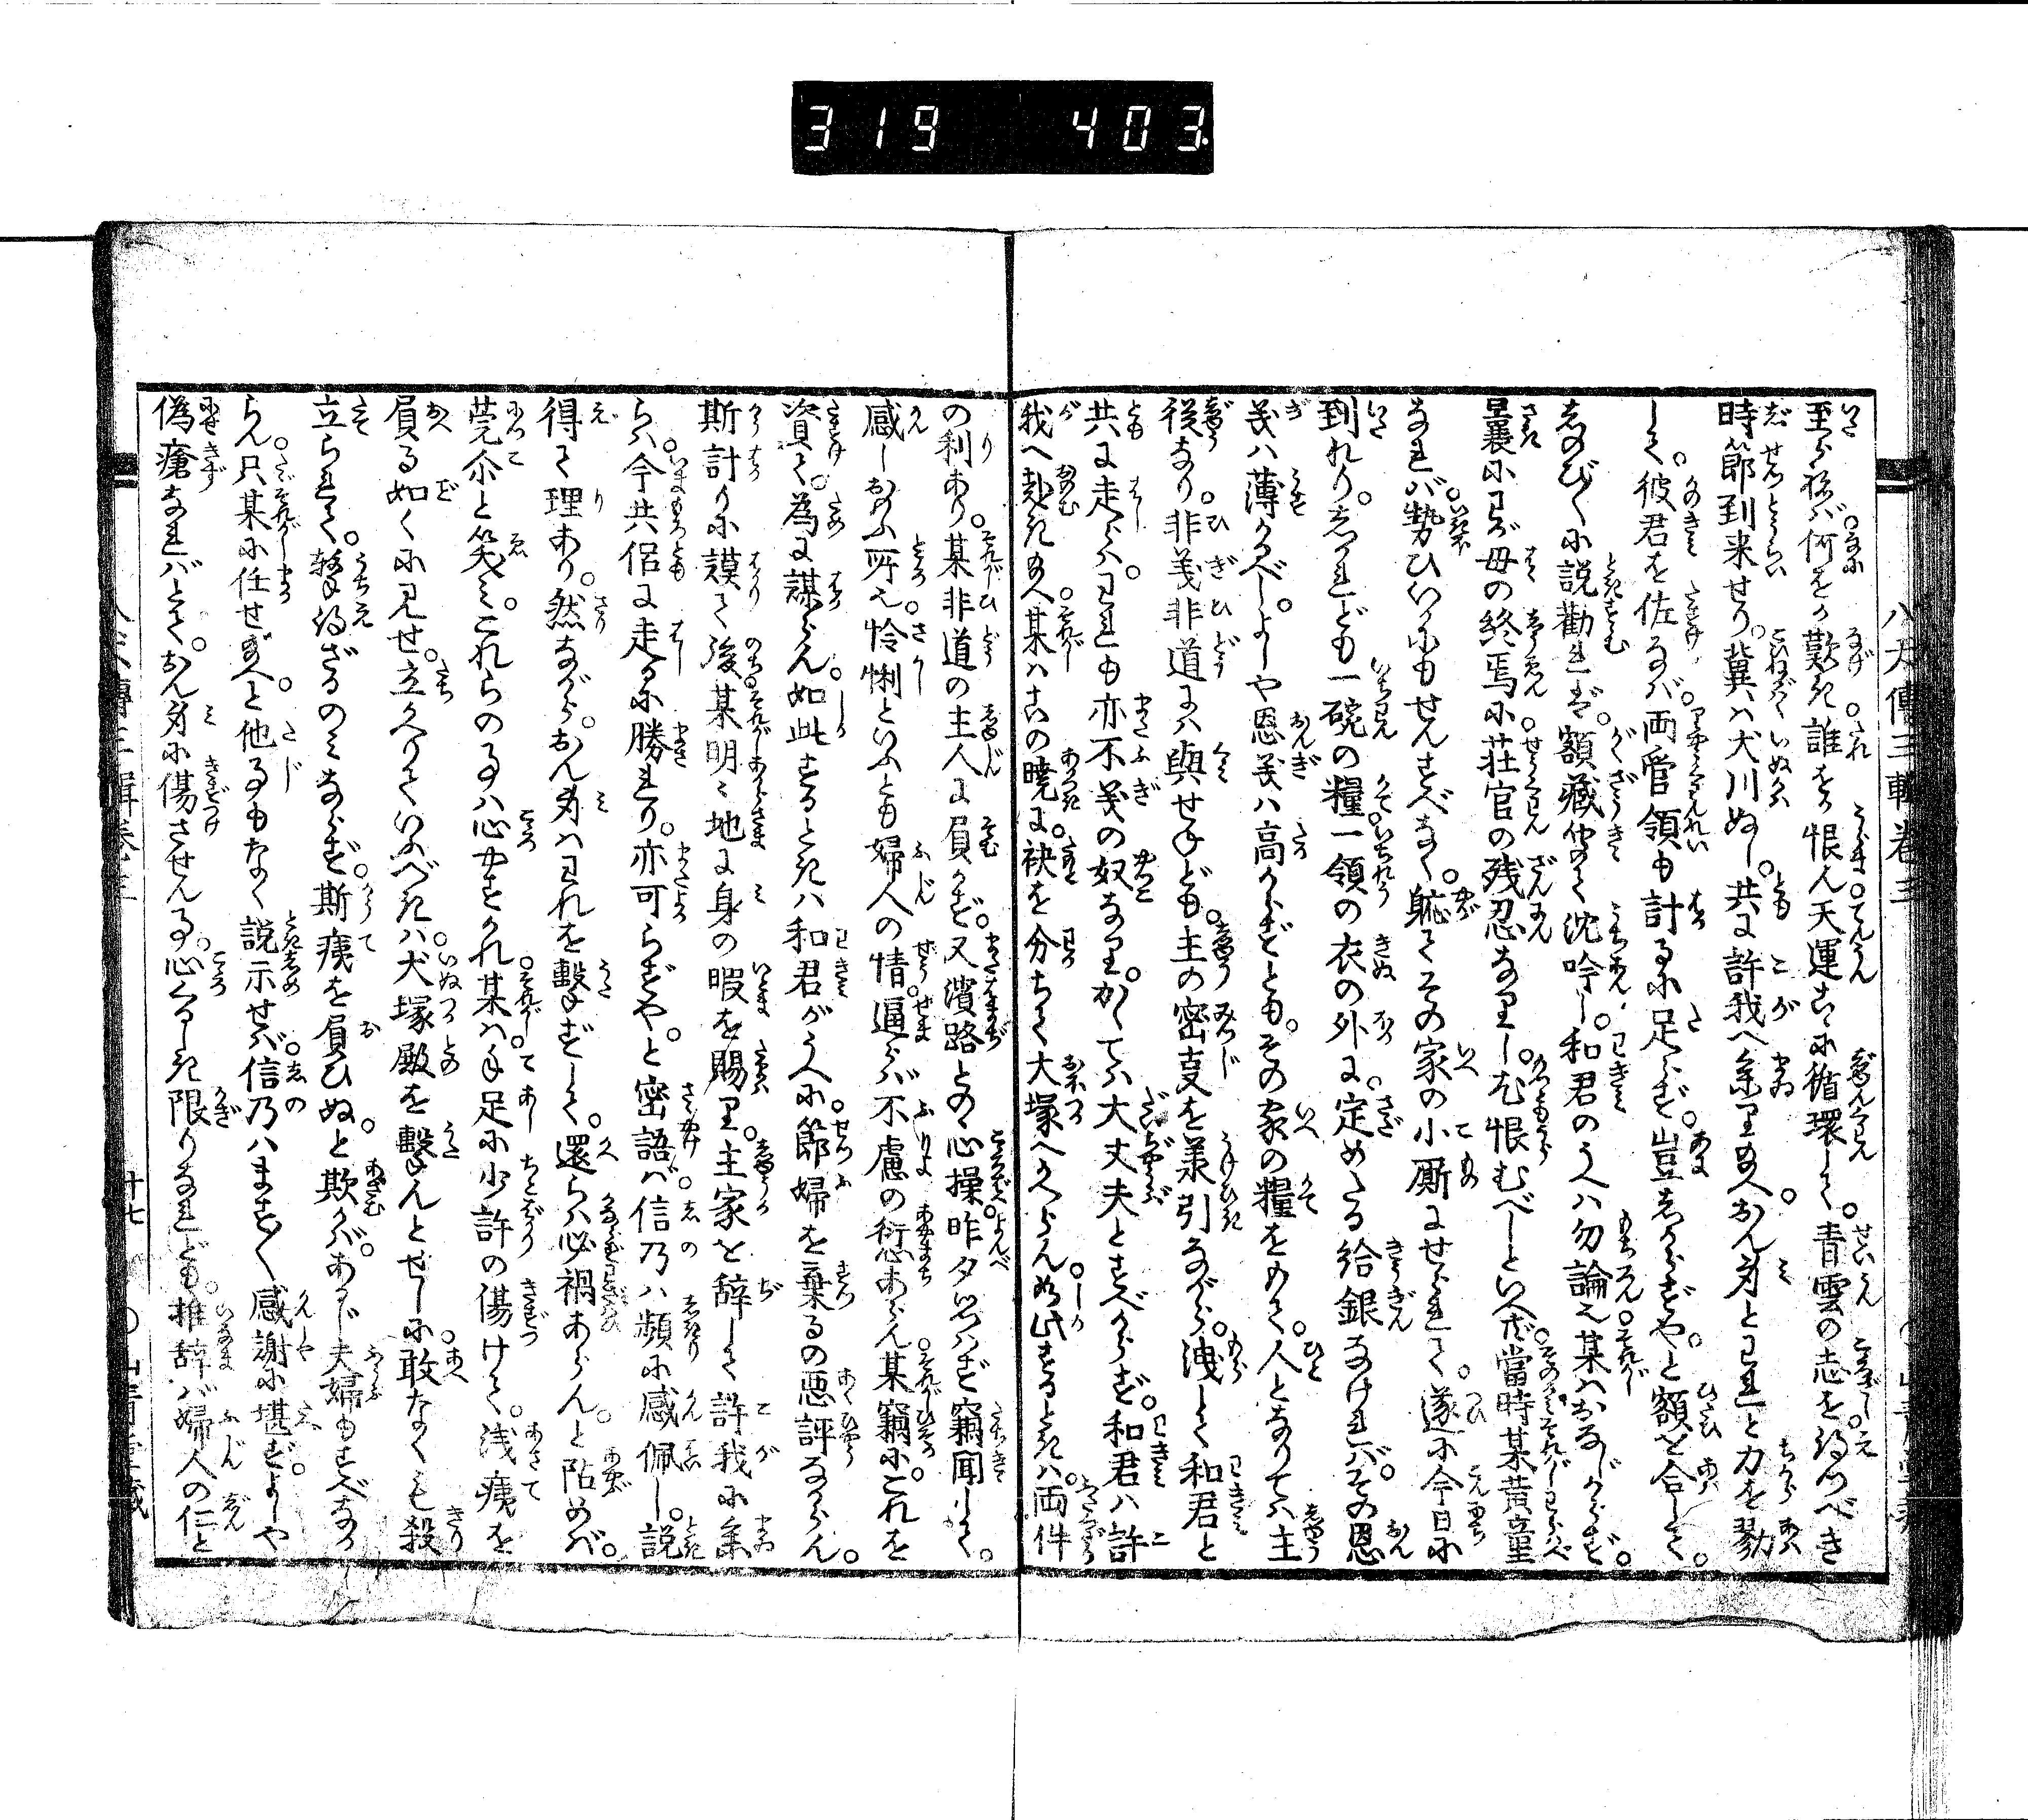 319 403.
八犬傳三輯卷三
至らねば。何をか歎き。誰をか恨ん。天運こゝに循環して。青雲の志を得つべき
時節到来せり。冀くは犬川ぬし。共に許我へ参り給へ。おん身とわれと力を勠
して。彼君を佐なば。両管領も計るに足らず。豈しからずや。と額を合して。
しのび〳〵に説勸れば。額藏は沈吟じ。和君のうへは勿論也。某はおなじからず。
曩にわが母の終焉に。荘官の残忍なりしを恨むべしといへども。當時某黄童
なれば。勢ひいかにもせんすべなく。躰てその家の小厮にせられて。遂に今日に
到れり。しかれども一碗の糧。一領の衣の外に。定めたる給銀なければ。その恩
義は薄かるべし。よしや恩義は高からずとも。その家の糧をはみて。人となりては主
従なり。非義非道には與せねども。主の密事を承引ながら。洩して和君と
共に走らば。われも亦不義の奴なり。かくては大丈夫とすべからず。和君は許
我へ赴き給へ。某はこの暁に。袂を分ちて大塚へかへらん。如此するときは。両件
の利あり。某非道の主人に負かず。又濱路どのゝ心操。昨夕思はず竊聞して。
感じおもふ所也。怜悧といふとも婦人の情。逼らば不慮の愆あらん。某竊に。これを
資て。為に謀らん。如此するときは和君がうへに。節婦を棄るの悪評なからん。
斯計りに謨て後。某明々地に身の暇を賜り。主家を辞して許我に参
らば。今共侶に走るに勝れり。亦可らずや。と密語ば。信乃は頻に感佩し。説
得て理あり。然ながら。おん身はわれを撃ずして。還らば必禍あらん。と諫めば。
莞尓と笑み。これらの事は心やすかれ。某は手足に少許の傷けて。浅痍を
負る如くに見せ。立かへりていふべきは。犬塚殿を撃んとせしに。敢なくも殺
立られて。撃得ざるのみならず。斯痍を負ひぬ。と欺かば。あるじ夫婦もすべなか
らん。只某に任せ給へ。と他事もなく説示せば。信乃はますく感謝に堪ず。よしや
偽瘡なればとて。おん身に傷させん事。心くるしき限りなれども。推辞ば婦人の仁と
八犬傳三輯卷三
十七